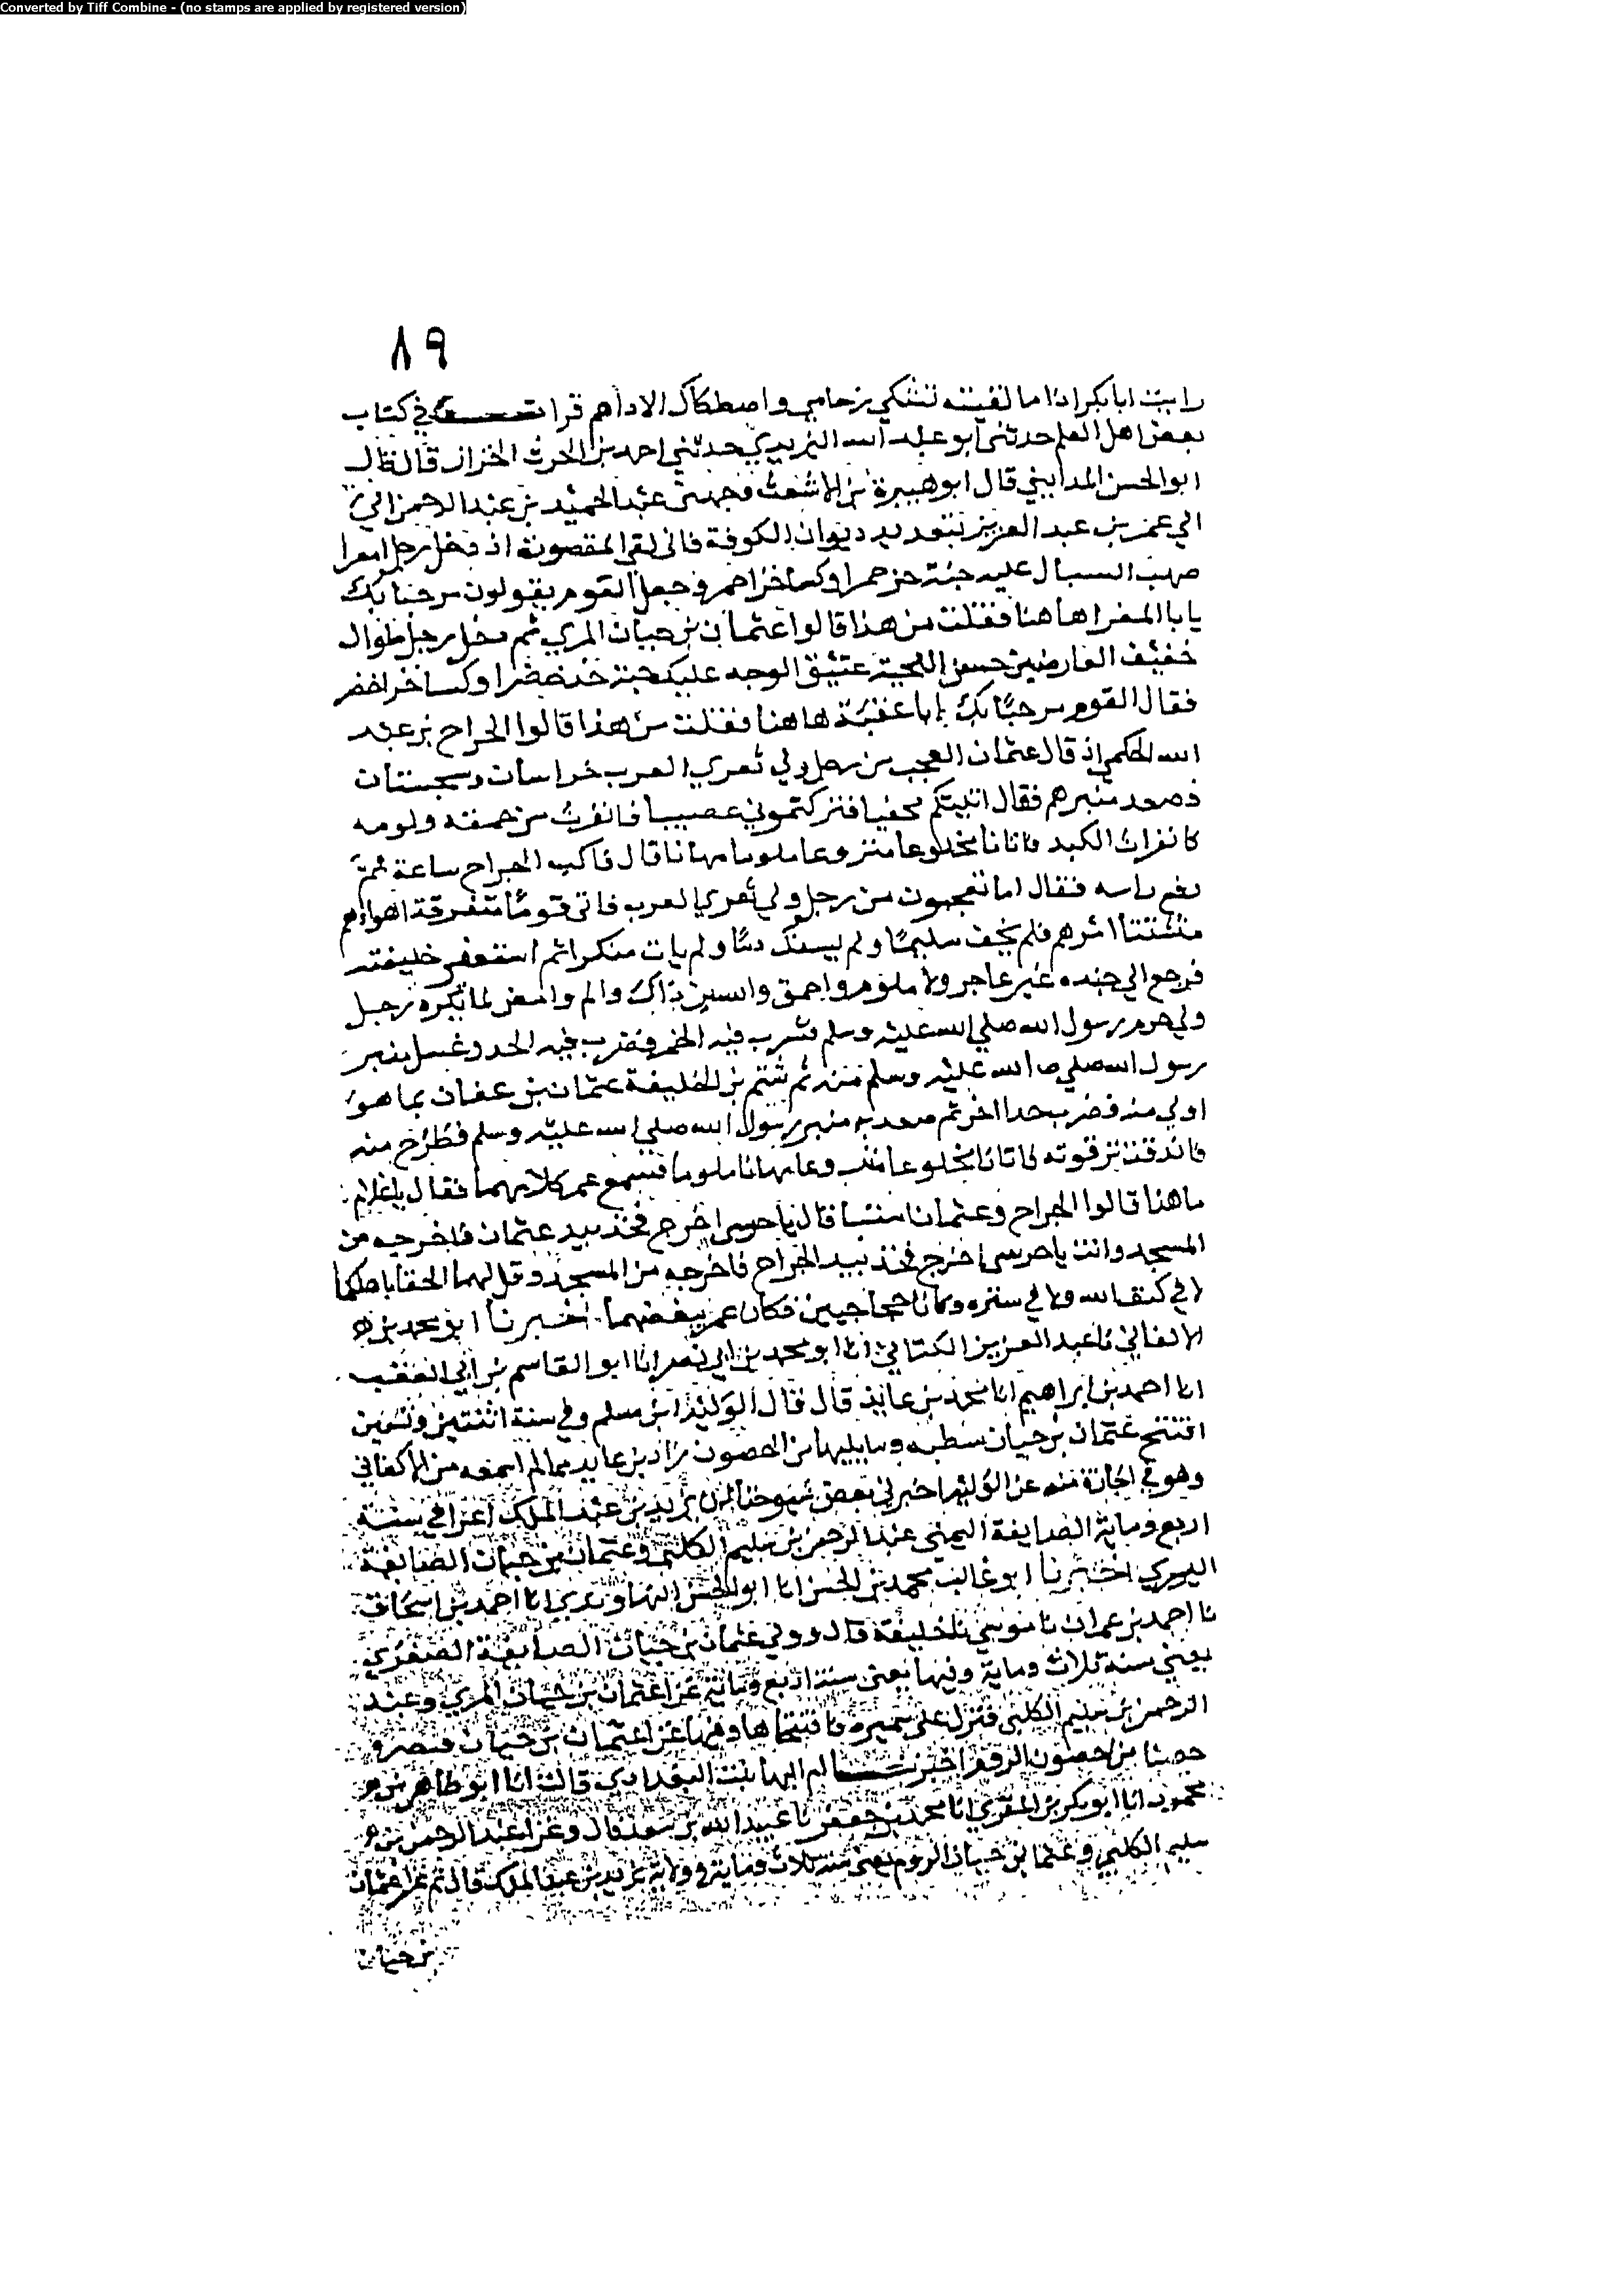 Converted by Tiff Combine - (no stamps are applied by registered version)
٨٩
رايت ابا بكر اذا ما لقيته تشتكي زحامي واصطكاك الاداهم قرات في كتاب
بعض اهل العلم حدثني ابو عبد الله اليزيدي حدثني احمد بن الحرث الخزاز قال قال
ابو الحسن المدايني قال ابو هبيرة بن الاشعث وجهني عبد الحميد بن عبد الرحمن الي
الي عمر بن عبد العزيز ديوان الكوفة فاني لفي المقصورة اذ دخل رجل
صهب السبال عليه جبة خز حمرا وكسا خز احمر وجعل القوم يقولون مرحبا بك
يابا المغرا هاهنا فقلت من هذا قالوا عثمان بن حيان المري ثم دخل رجل طوال
خفيف العارضين حسن اللحية عتيق الوجه عليه جبة خز خضرا وكسا خز اخضر
فقال القوم مرحبا بك يا با عقبة هاهنا فقلت من هذا قالوا الجراح بن عبد
الله الحكمي اذ قال عثمان العجب من رجل ولي ثغري العرب خراسان وسجستان
فصعد منبرهم فقال اتيتكم حفيا فتركتموني عصبيا فانفرث من حمقه ولومه
كانفراث الكبد فاتانا مخلوعا منتزوعا ملوما مهانا قال فاكب الجراح ساعة ثم
رفع راسه فقال اما تعجبون من رجل ولي ثغري العرب فاتى قوما متفرقة اهواهم
متشتتا امرهم فلم يخف سليما ولم يسفك دما ولم يات منكرا ثم استعفى خليفته
فرجع الي جنده غير عاجز ولا ملوم واحمق والام وامض لما تكره رجل
ولي حرم رسول الله صلي الله عليه وسلم فشرب فيه الخمر فضرب فيه الحد وغسل منبر
رسول الله صلي الله عليه وسلم منه ثم شتم بن الخليفة عثمان بن عفان بما هو
اولي منه فضرب حدا اخر ثم صعد به منبر رسول الله صلي الله عليه وسلم فطرح منه
فاندقت ترقوته فاتانا مخلوعا مهانا ملوما فسمع عمر كلامهما فقال يا غلام
ما هذا قالوا الجراح وعثمان استبا قال يا حرسي اخرج فخذ بيد عثمان فاخرجه من
المسجد وانت يا حرسي اخرج فخذ بيد الجراح فاخرجه من المسجد وقل لهما الحقا باهلكما
لا في كنف الله ولا في ستره وكانا حجاجيين فكان عمر يبغضهما اخبرنا ابو محمد بن
الاكفاني نا عبد العزيز الكتاني انا ابو محمد بن ابي نصر انا ابو القاسم بن ابي العقب
انا احمد بن ابراهيم انا محمد بن عايذ قال قال الوليد بن مسلم وفي سنة اثنتين وتسعين
افتتح عثمان بن حيان وما يليها من الحصون زاد بن عايذ مما لم اسمعه من الاكفاني
وهو في اجازة منه عن الوليد اخبرني بعض شيوخنا ان يزيد بن عبد الملك اغزا في سنة
اربع وماية الصايفة اليمني عبد الرحمن بن سليم الكلبي وعثمان بن حيان الصايفة
اليسري اخبرنا ابو غالب محمد بن الحسن انا ابو الحسن النهاوندي انا احمد بن اسحاق
نا احمد بن عمران نا موسي نا خليفة قال وولي عثمان بن حيان الصايفة الصغري
يعني سنة ثلاث وماية وفيها يعني سنة اربع وماية غزا عثمان بن حيان المري وعبد
الرحمن بن سليم الكلبي فنزل على فافتتحاها وفيها غزا عثمان بن حيان قيصره
حصنا من حصون الروم اخبرتنا ام البها بنت البغدادي قالت انا ابو طاهر بن
محمود انا ابو بكر بن المقري انا محمد بن جعفر نا عبيد الله بن سعد قال وغزا عبد الرحمن بن
سليم الكلبي وعثمان بن حيان الروم يعني سنة ثلاث وماية في ولاية يزيد بن عبد الملك قال ثم غزا عثمان
بن حيان